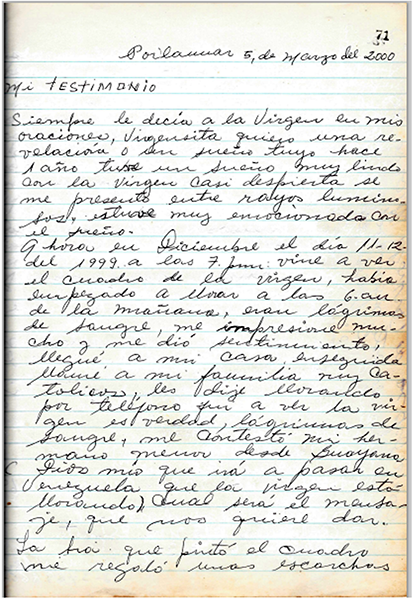 71
Poilamar 5, de Marzo del 2000
Mi TESTIMONIO
Siempre le decía a la Virgen en mis
oraciones, Virgensita quiero una re-
velación o un sueño tuyo hace
1 año tuve un sueño muy lindo
con la virgen casi despierta se
me presento entre rayos lumin-
sos, estuve muy emocionada con
el sueño.
Ahora en Diciembre el día 11-12
del 1999 a las 7. pm: vine a ver
el cuadro de la virgen, había
empezado a llorar a las 6. am
de la mañana, eran lágrimas
de sangre, me impresione mu-
cho y me dió sentimiento,
llegué a mi casa enseguida
llamé a mi familia muy ca-
tolicos, les dije llorando
por teléfono fui a ver la vir-
gen es verdad, lágrimas de
sangre, me contestó mi her-
mano menor desde Guayana
(Dios mio que irá a pasar en
Venezuela que la virgen está
llorando) Cual será el mensa-
je, que nos quiere dar.
La Sra que pintó el cuadro
me regaló unas escarchas